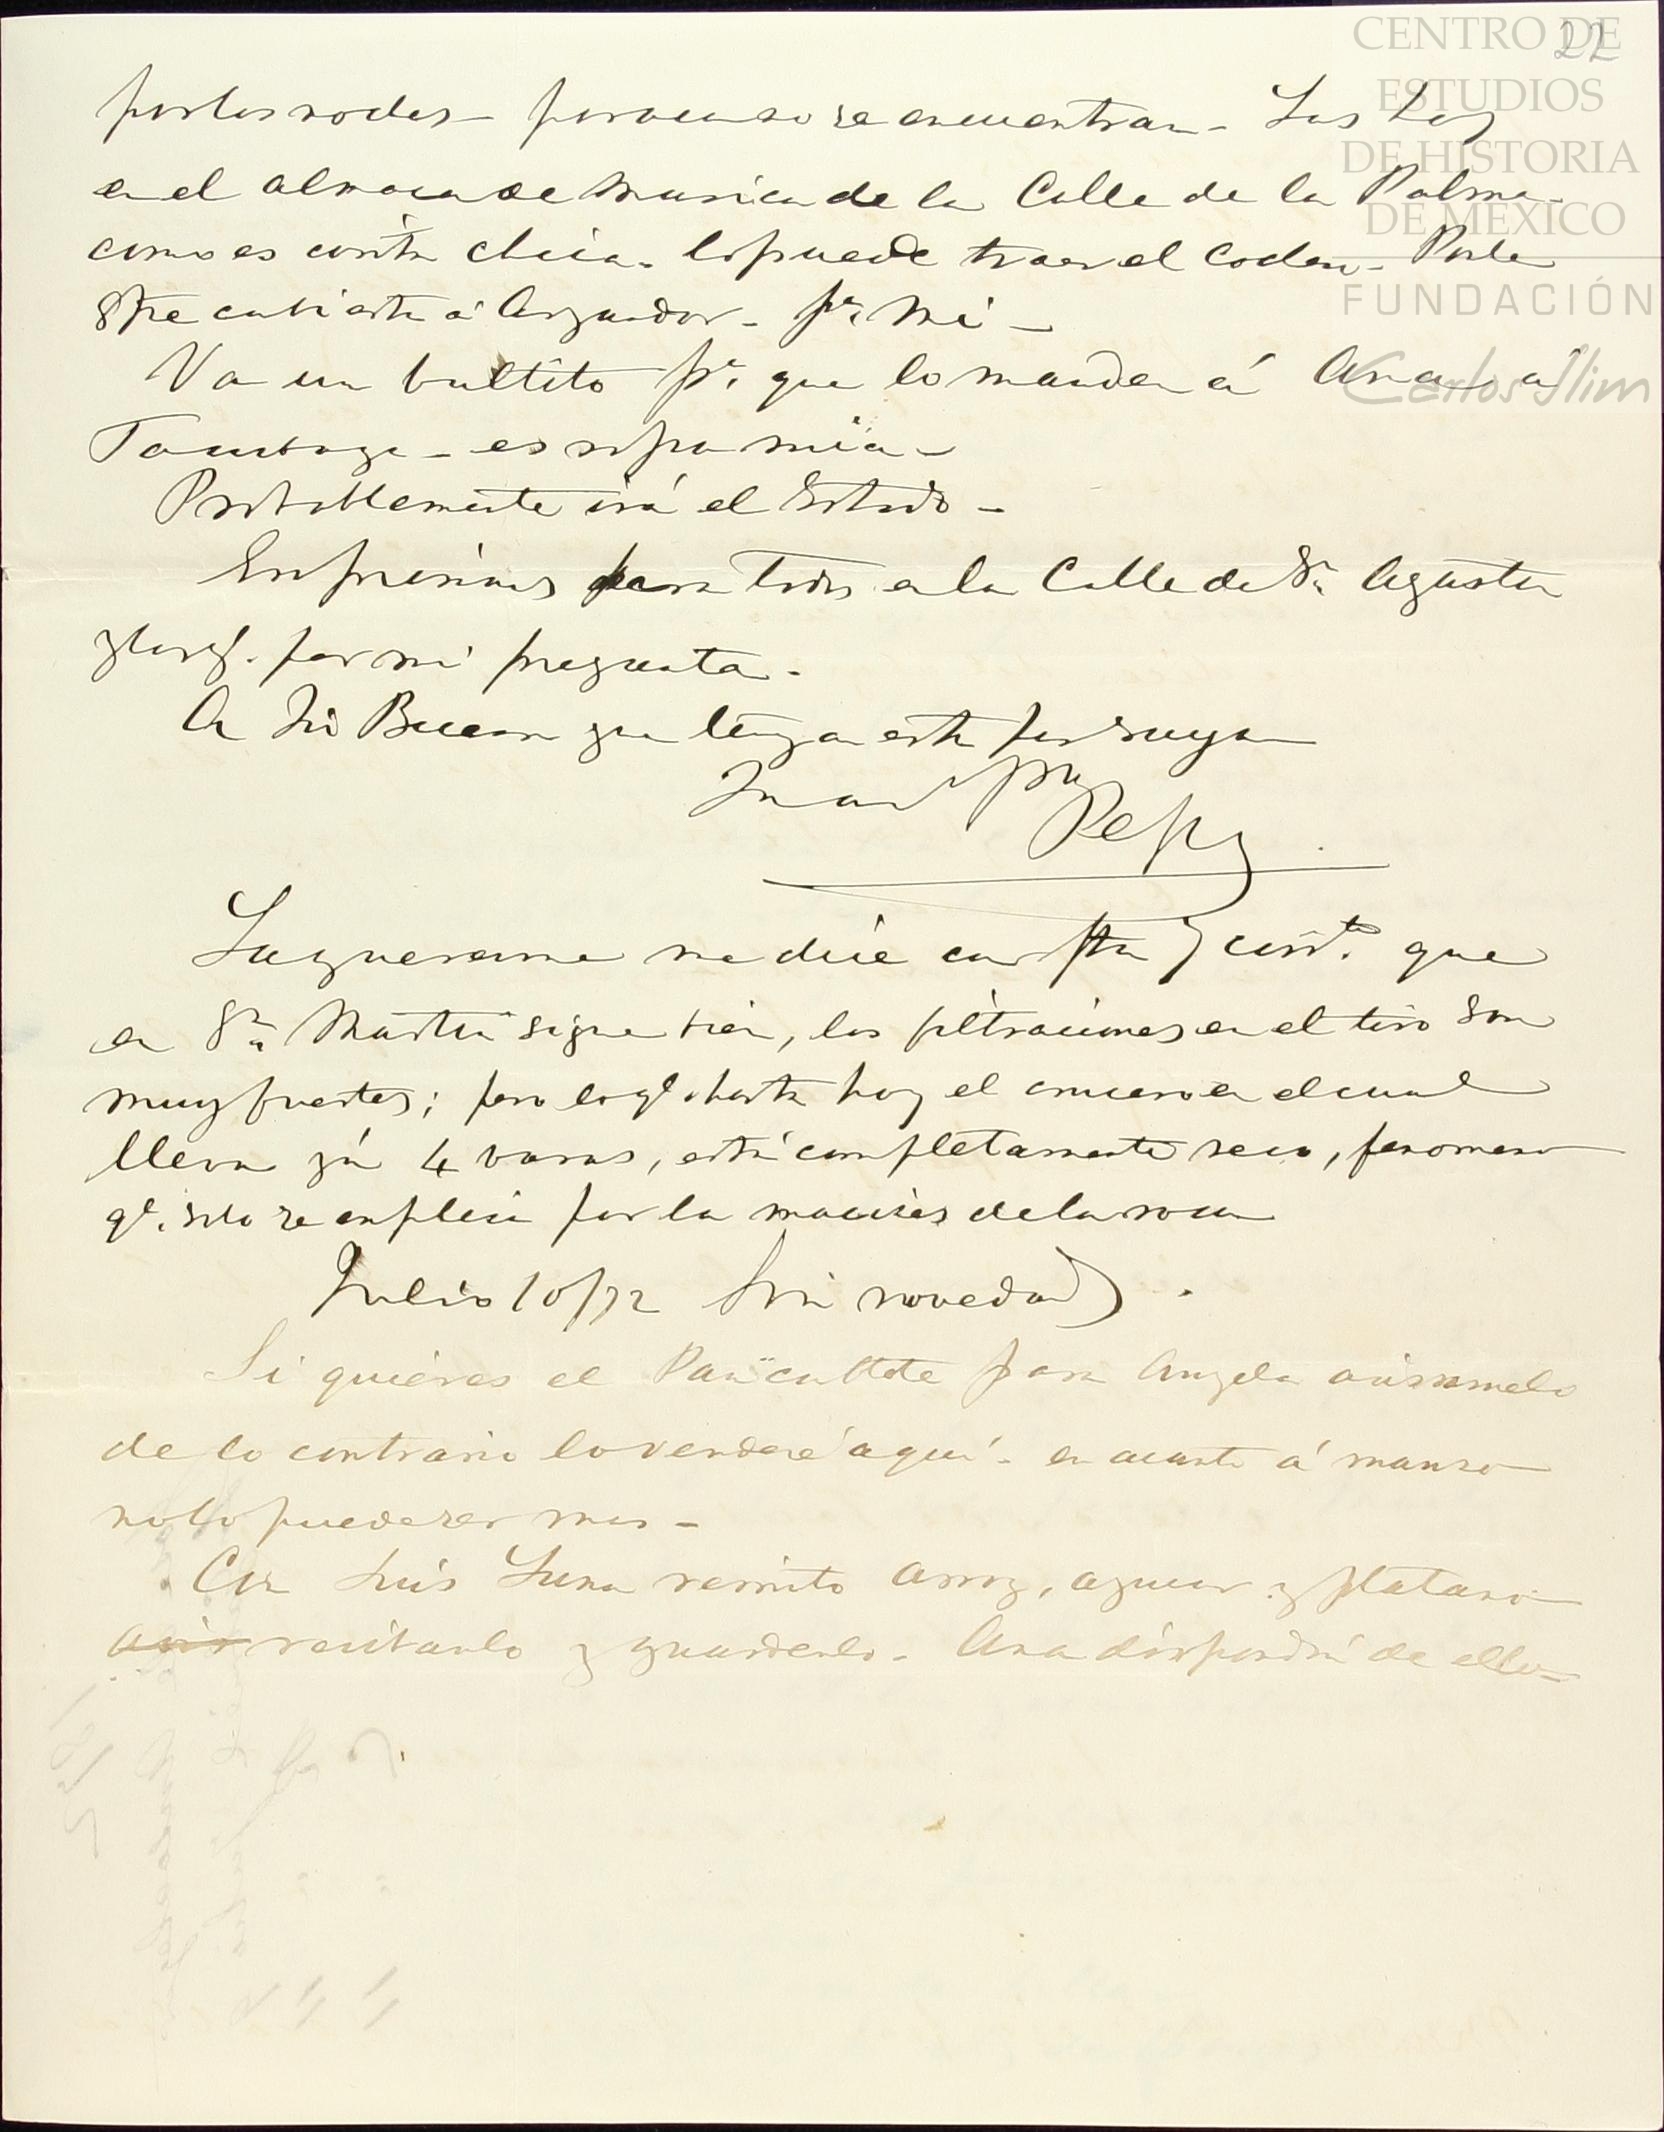 22
CENTRO DE
ESTUDIOS
DE HISTORIA
DE MEXICO
FUNDACIÓN
Carlos Slim
por los rodes - por acaso se encuentran - Las hay
en el almacen de Musica de la Calle de la Palma -
como es cosita chica - lo puede traer el Coden - Pode
cubierta á - pa. mi -
Va un bultito pa. que lo manden á Ana á
- es ropa mia -
Probablemente irá el Sotudo -
para todos en la Calle de Sn. Agustin
y los q. por mi pregunta -
A Dio Buena que tenga esta por suya
Pepe
Laguerenne me dice con fha 7 corrte. que
en Sn. Martin sigue bien, las filtraciones en el tiro son
muy fuertes; pero lo q. hasta hoy el crucero en el cual
lleva yá 4 varas, está completamente seco, fenomeno
qe. solo se explica por la macisés de la roca
Julio 10/72 Sin novedad.
Si quieres el para Angela avisamelo
de lo contrario lo venderé aquí - en cuanto á manso
no lo puede ser mas -
Con Luis Luna remito arroz, azucar y platano
recibanlo y guardenlo - Ana dispondrá de ello -